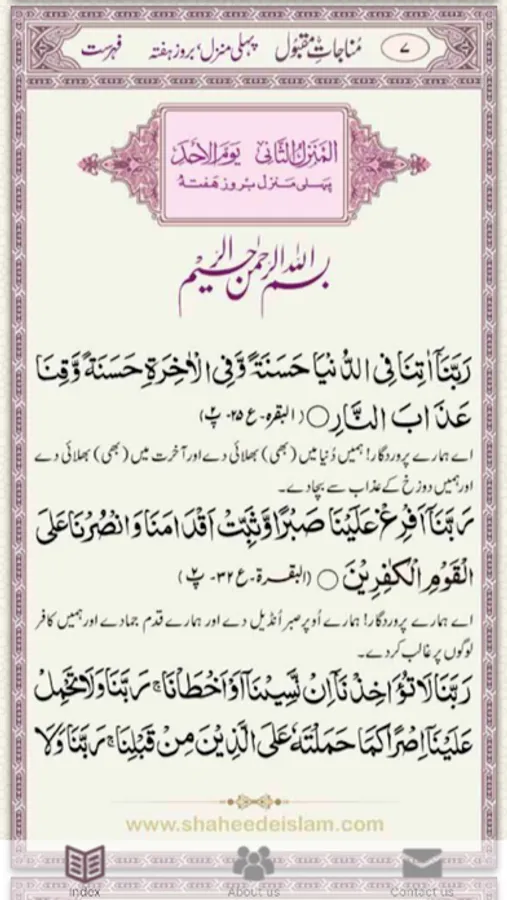 ۷ مُنَاجاتِ مقبُول پہلی منزل، بروز ہفتہ فہرست
اَلمَنزِلُ الثَّانِی یَومَ الاَحَد
پہلی منزل بروز ہفتہ
بسم اللہ الرحمٰن الرحیم
رَبَّنَآ اٰتِنَا فِی الدُّنْیَا حَسَنَةً وَّفِی الْاٰخِرَةِ حَسَنَةً وَّقِنَا
عَذَابَ النَّارِ ○ (البقرہ۔ع ۲۵۔ پ۲)
اے ہمارے پروردگار! ہمیں دُنیا میں (بھی) بھلائی دے اور آخرت میں (بھی) بھلائی دے
اور ہمیں دوزخ کے عذاب سے بچادے۔
رَبَّنَآ اَفْرِغْ عَلَیْنَا صَبْرًا وَّثَبِّتْ اَقْدَامَنَا وَانْصُرْنَا عَلَی
الْقَوْمِ الْکٰفِرِیْنَ ○ (البقرة۔ع ۳۲۔ پ۲)
اے ہمارے پروردگار! ہمارے اُوپر صبر اُنڈیل دے اور ہمارے قدم جمادے اور ہمیں کافر
لوگوں پر غالب کردے۔
رَبَّنَا لَا تُؤَاخِذْنَآ اِنْ نَّسِیْنَآ اَوْ اَخْطَاْنَا ۚ رَبَّنَا وَلَا تَحْمِلْ
عَلَیْنَآ اِصْرًا کَمَا حَمَلْتَهٗ عَلَی الَّذِیْنَ مِنْ قَبْلِنَا ۚ رَبَّنَا وَلَا
www.shaheedeislam.com
Index About us Contact us